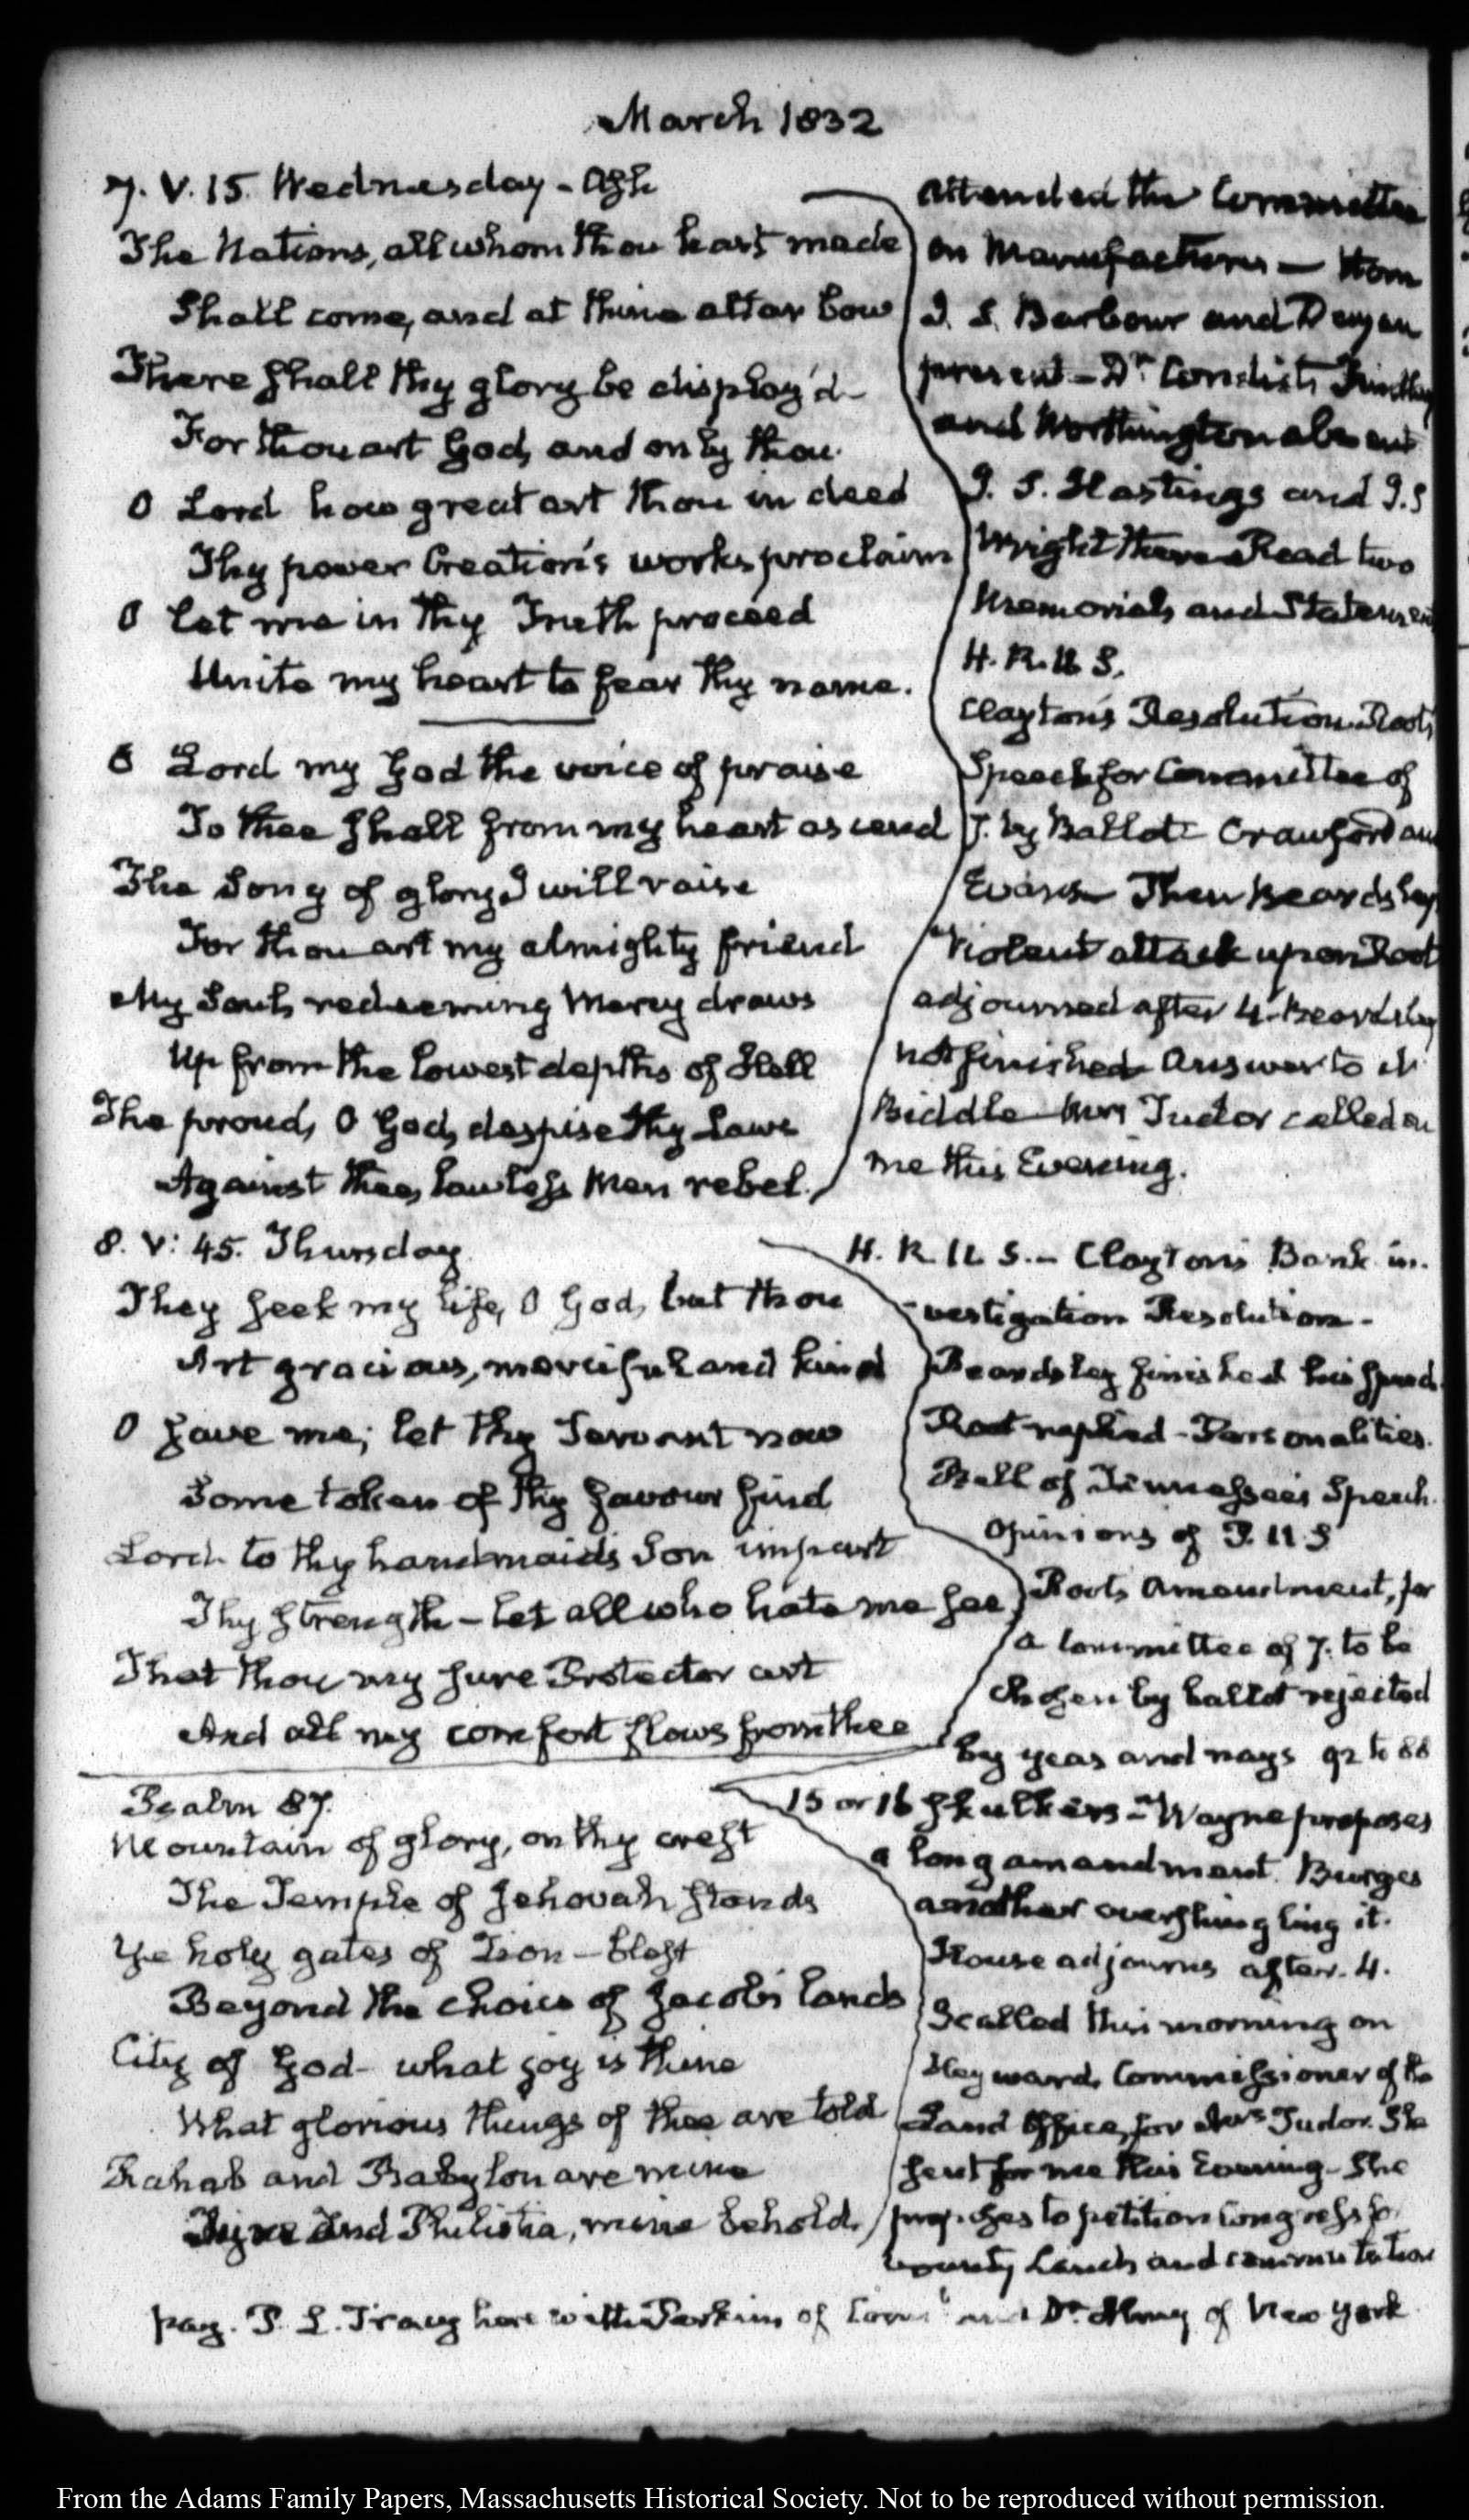 March 1832
7. V. 15. Wednesday - Ash
The Nations, all whom thou hast made
Shall come, and at thine altar bow
There shall thy glory be display'd
For thou art God, and only thou.
O Lord how great art thou in deed
Thy power Creation's works proclaim
O let me in thy Truth proceed
Unite my heart to fear thy name.
O Lord my God the voice of praise
To thee shall from my heart ascend
The Song of glory I will raise
For thou art my almighty friend
My Soul, redeeming Mercy draws
Up from the lowest depths of Hell
The proud, O God, despise thy Laws
Against thee, lawless Men rebel.
attended the Committee
on Manufactures — Hom
J. S. Barbour and Dayan
present - Dr. Condict, Findlay
and Worthington absent
J. S. Hastings and J. S
Wright there Read two
Memorials and Statemen
H. R. U S.
Clayton's Resolution. Root's
Speech for Committee of
7. by Ballot Crawford and
Evans Then Beardsley
Violent attack upon Root
adjourned after 4. Beardsley
not finished Answer to
Biddle Mrs Tudor called on
me this Evening.
8. V: 45. Thursday
They seek my life, O God, but thou
Art gracious, merciful and kind
O save me; let thy Servant now
Some token of thy favour find
Lord to thy handmaid's Son impart
Thy strength - let all who hate me see
That thou my sure Protector art
And all my comfort flows from thee
H. R. U S. - Clayton's Bank in-
-vestigation Resolution -
Beardsley finished his speech.
Root replied - Personalities.
Bell of Tennessee's Speech.
Opinions of P. U S
Root's Amendment, for
a Committee of 7. to be
chosen by ballot rejected
by yeas and nays 92 to 88
Psalm 87.
Mountain of glory, on thy crest
The Temple of Jehovah stands
Ye holy gates of Zion - blest
Beyond the choice of Jacob's lands
City of God - what joy is thine
What glorious things of thee are told
Rahab and Babylon are mine
Tyre And Philistia, mine behold.
15 or 16 skulkers - Wayne proposes
a long amendment. Burges
another overslinging it.
House adjourns after. 4.
I called this morning on
Hayward, Commissioner of the
Land Office, for Mrs Tudor. She
sent for me this Evening - She
proposes to petition Congress for
bounty Lands and commutation
pay. P. L. Tracy here with Perkins of and Dr. of New York